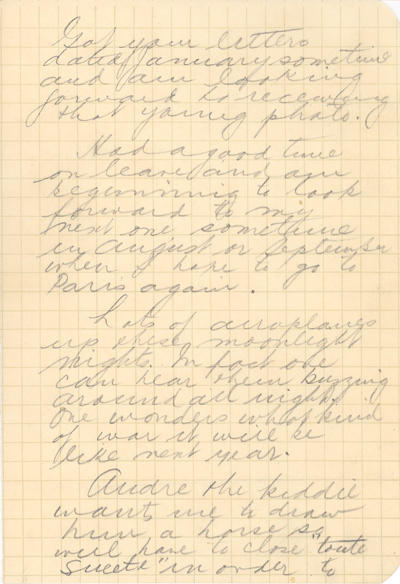 Got your letters
dated January sometime
and am looking
forward to receiving
that young photo.
Had a good time
on leave and am
beginning to look
forward to my
next one sometime
in August or September
when I hope to go to
Paris again.
Lots of aeroplanes
up these moonlight
nights. In fact one
can hear them buzzing
around all night.
One wonders what kind
of war it will be
like next year.
Andre the kiddie
wants me to draw
him a horse so
will have to close "toute
Sueete" in order to